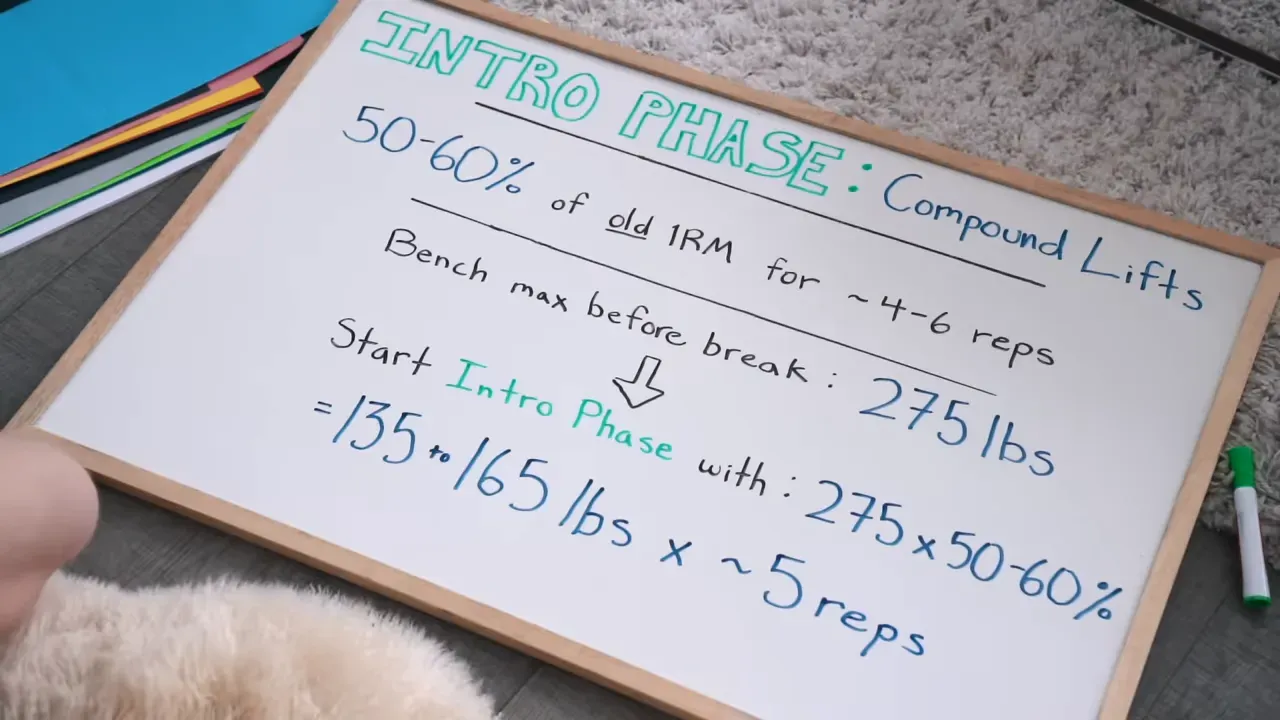 INTRO PHASE: Compound Lifts
50-60% of old 1RM for ~4-6 reps
Bench max before break: 275 lbs
Start Intro Phase with: 275 x 50-60%
= 135 to 165 lbs x ~5 reps